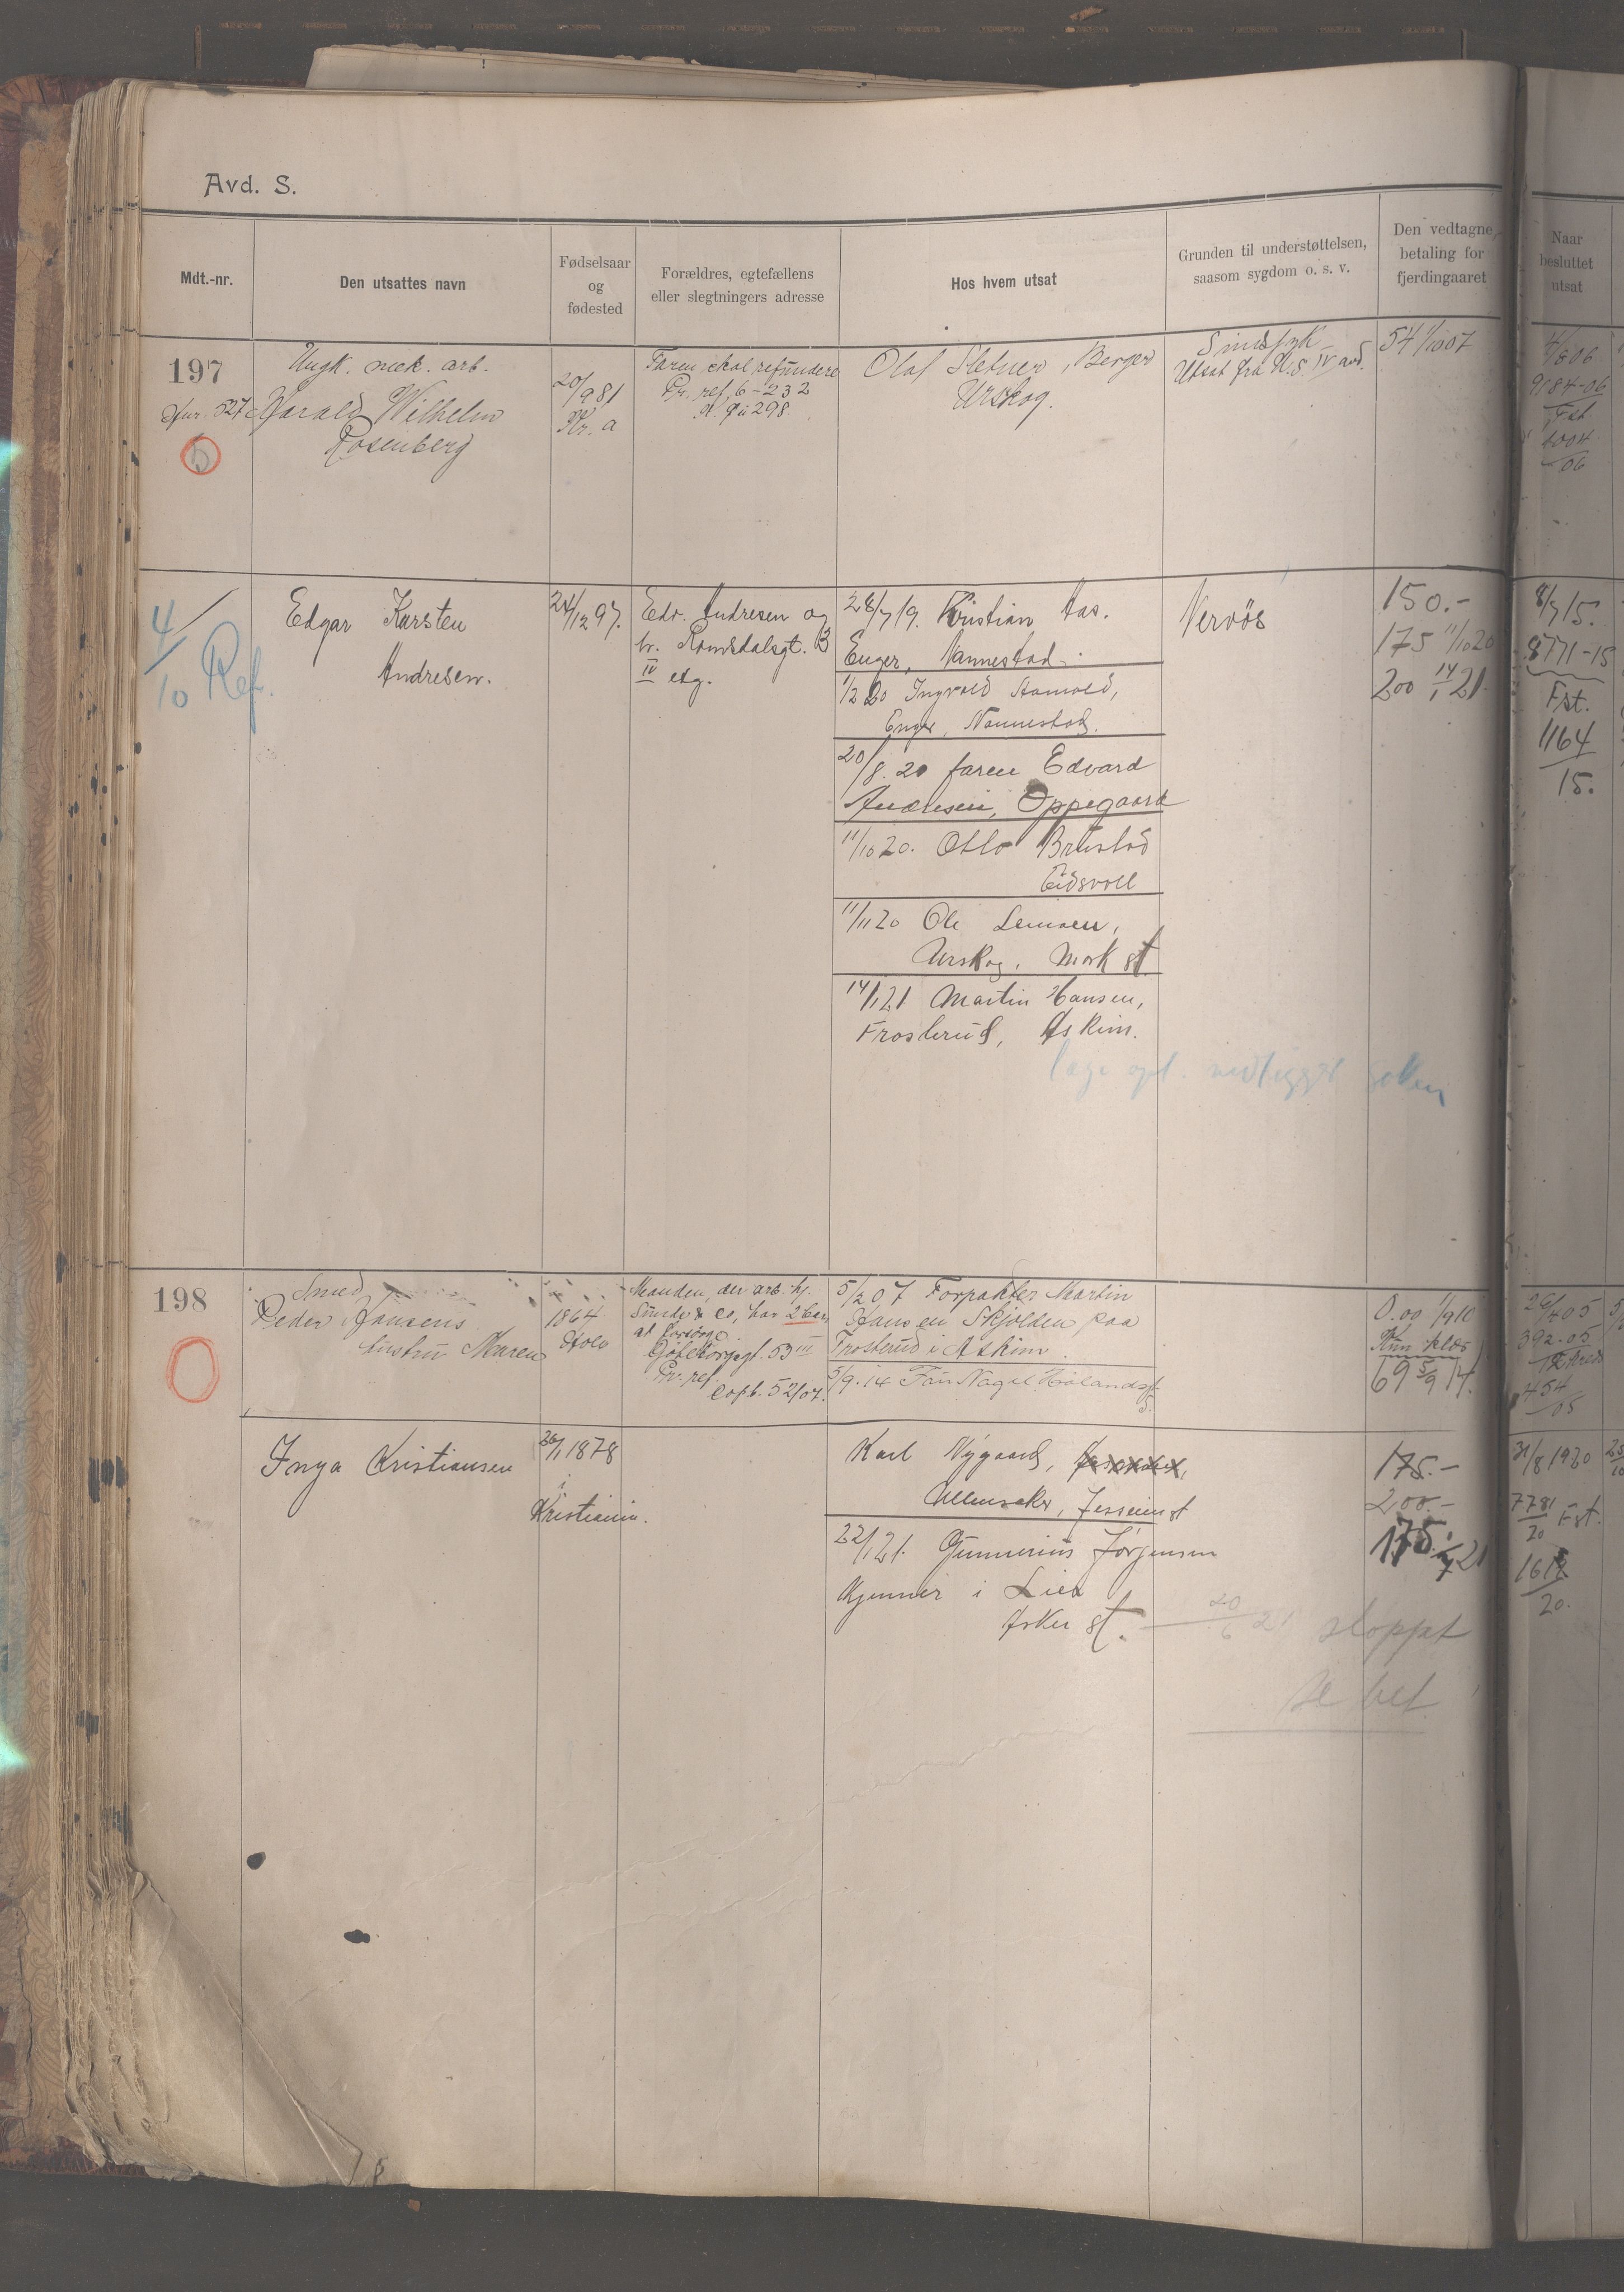 Avd. S.
Mdt.-nr.
Den utsattes navn
Fødselsaar
og
fødested
Forældres, egtefællens
eller slegtningers adresse
Hos hvem utsat
Grunden til understøttelsen,
saasom sygdom o. s. v.
Den vedtagne
betaling for
fjerdingaaret
Naar
besluttet
utsat
197
527
5
Ungk. mek. arb.
Harald Wilhelm
Rosenberg
20/9 81
Kr. a
Faren skal refundere
Pr. ref. 6-232
298
Olaf Sletner, Berger
Urskog.
Sindssyk
Utsat fra H.S. IV avd.
54 1/10 07
4/8 06
9184-06
Fst.
1004
06
4/10 Ref.
Edgar Karsten
Andresen.
24/12 97.
Edv. Andresen og
h. Romsdalsgt. 13
IV etg.
28/7 19. Kristian Aas.
Enger, Nannestad.
1/2 20 Ingvold
Enger, Nannestad.
20/8. 20 faren Edvard
Andresen, Oppegaard
11/10 20. Otto Brustad
Eidsvoll
11/11 20 Ole
Urskog. Mork st
14/1 21. Martin Hansen,
Frosterud, Askim.
Nervøs
150.-
175 11/10 20
200 14/1 21.
8/7 15.
8771-15
Fst.
1164
15.
198
Smed
Peder Jansens
hustru Maren
1864
Manden, der arb. hj.
Sunde & Co, har 2 barn
at forsørge.
Göteborggt. 53 III
Pr. ref.
Copb. 52/07.
5/2 07 Forpakter Martin
Hansen Skjolden paa
Frosterud i Askim.
5/9. 14 Fru Nagel Hølandsgt.
5.
0.00 1/9 10
Kun klær
69 5/9 14.
26/4 05
392-05
454
05
Inga Kristiansen
26/1 1878
i
Kristiania.
Karl Nygaard,
Ullensaker, Jessheim st
22/1 21. Gunnerius Jørgensen
Kjenner i Lier
Asker st.
20/6 21 stoppet
se bet.
175.-
200.-
175.- 1/7 21
21/8 1920
7781
20 Fst.
1612
20.